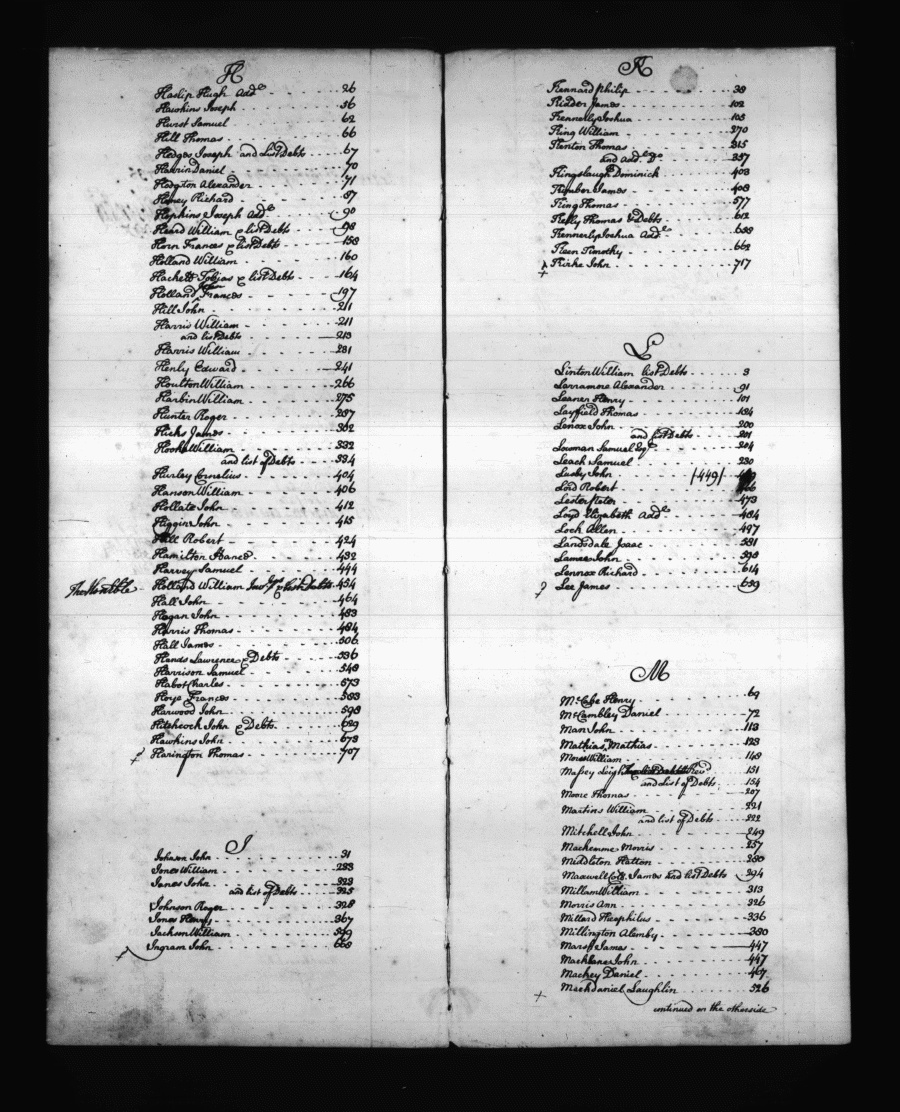 H
Haslip Hugh Add.e 26
Hawkins Joseph 56
Hurst Samuel 62
Hill Thomas 66
Hedges Joseph and List Debts 67
Harrin Daniel 70
Hodgton Alexander 71
Honey Richard 87
Hopkins Joseph Add.e 90
Heard William & list Debts 98
Horn Frances & list Debts 158
Holland William 160
Hackett Tobias & list Debts 164
Holland Frances 197
Hill John 211
Harris William 211
and list Debts 213
Harris William 231
Henly Edward 241
Houlton William 266
Harbin William 275
Hunter Roger 287
Hicks James 302
Hook William 332
and list of Debts 334
Hurley Cornelius 404
Hanson William 406
Hollate John 412
Higgin John 415
Hall Robert 424
Hamilton 432
Harvey Samuel 444
The Hon.ble Holland William & list Debts 454
Hall John 464
Hagan John 483
Harris Thomas 484
Hall James 506
Hands Lawrence & Debts 536
Harrison Samuel 548
Habot Charles 573
Hoye Frances 583
Harwood John 598
Hitchcock John & Debts 629
Hawkins John 673
Harington Thomas 707
I
Johnson John 31
Jones William 283
Janes John 323
and list of Debts 325
Johnson Roger 328
Jones Henry 367
Jackson William 599
Ingram John 668
K
Kennard Philip 38
Kidder James 102
Kennerly Joshua 103
King William 270
Kenton Thomas 315
and Add.e &c 357
Kingslaugh Dominick 403
Kimber James 408
King Thomas 577
Kelly Thomas & Debts 612
Kennerly Joshua Add.e 638
Keen Timothy 662
Kirke John 717
L
Linton William list Debts 3
Larramore Alexander 91
Leaner Henry 101
Layfield Thomas 184
Lenox John 200
and list Debts 201
Lowman Samuel Esq.r 204
Leach Samuel 230
Lusby John /449/
Lord Robert
Lester Peter 473
Loyd Elizabeth Add.e 484
Loch Allen 497
Landsdale Isaac 581
Lamee John 598
Lennox Richard 614
Lee James 639
M
McCabe Henry 69
McCambley Daniel 72
Man John 113
Mathias Mathias 123
More William 148
Massey Leigh Rev.d 151
and List of Debts 154
Moore Thomas 207
Martins William 221
and list of Debts 222
Mitchell John 249
Mackemme Morris 257
Middleton Hatton 280
Maxwell Coll. James and list Debts 294
Millam William 313
Morris Ann 326
Millard Theophilus 336
Millington Alemby 380
Marsh James 447
Macklane John 447
Mackey Daniel 467
Mackdaniel Laughlin 526
continued on the otherside